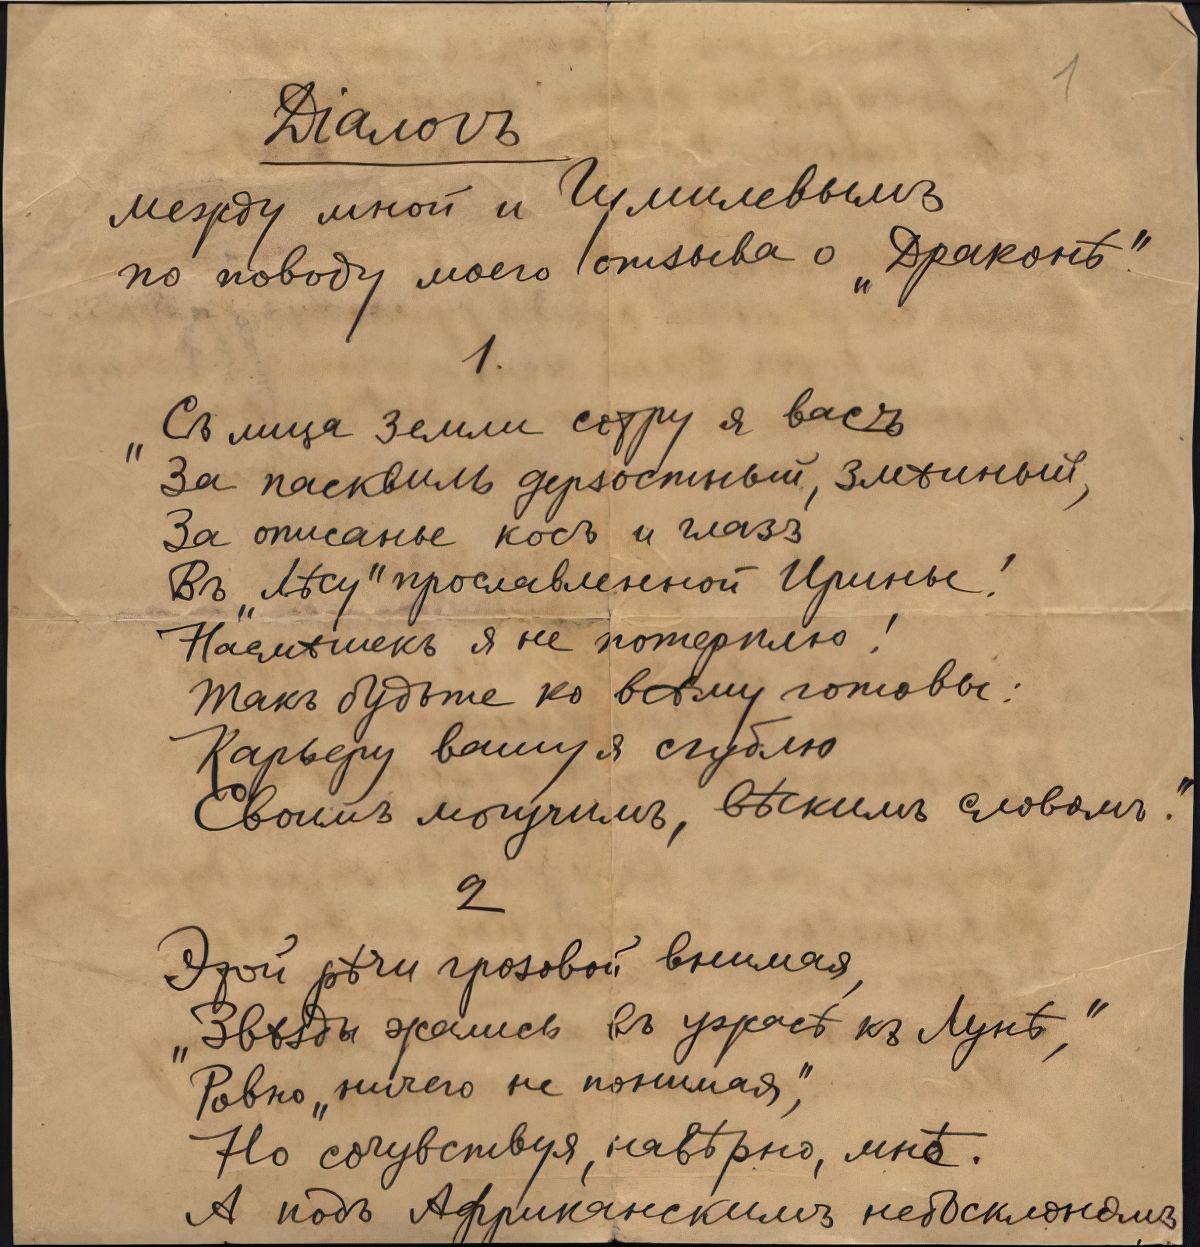 1
Діалогъ
между мной и Гумилевымъ
по поводу моего отзыва о „Драконѣ“
1.
„Съ лица земли сотру я васъ
За пасквиль дерзостный, змѣиный,
За описанье косъ и глазъ
Въ „Лѣсу“ прославленной Ирины!
Насмѣшекъ я не потерплю!
Такъ будьте ко всѣму готовы:
Карьеру вашу я сгублю
Своимъ могучимъ, вѣскимъ словомъ.“
2
Этой рѣчи грозовой внимая,
„Звѣзды жались въ ужасѣ къ Лунѣ,“
Ровно „ничего не понимая“,
Но сочувствуя, навѣрно, мнѣ.
А подъ Африканскимъ небосклономъ